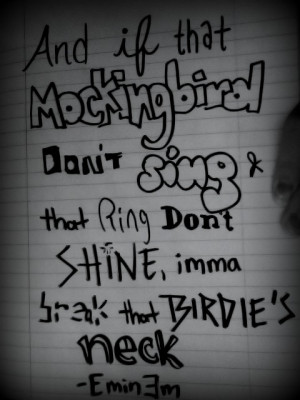 And if that
Mockingbird
Don't sing &
that Ring Don't
SHiNE, imma
break that BIRDIE'S
neck
-EminEm